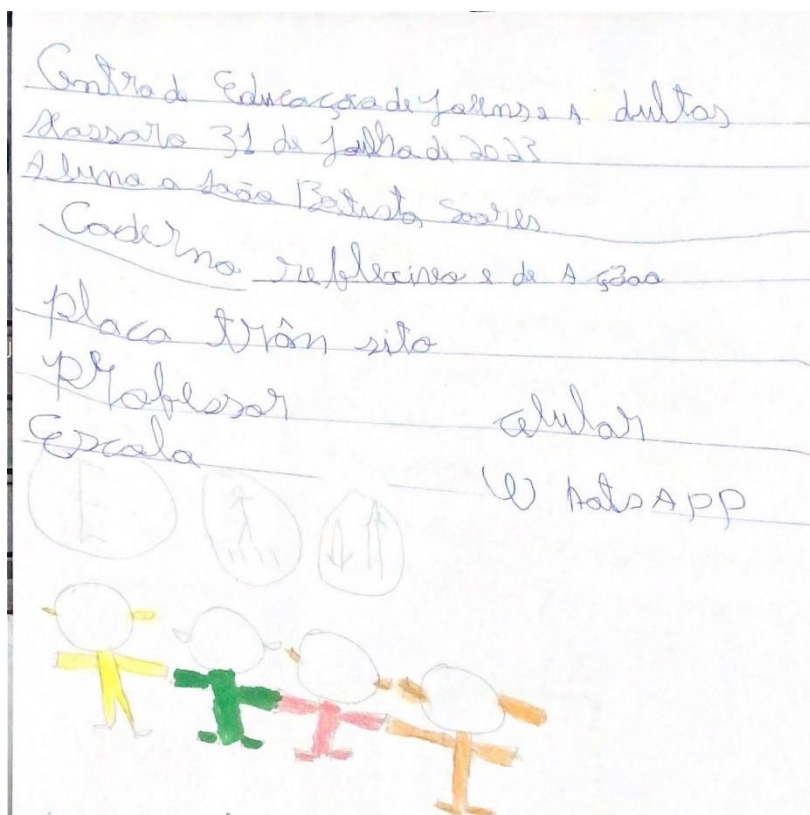 Centro de Educação de Jovens e A dultos
31 de Julho de 2023
Aluno a João Batista Soares
Caderno reflexivo e de A ção
placa trân sito
Professor
Escola
celular
W hatsAPP
E